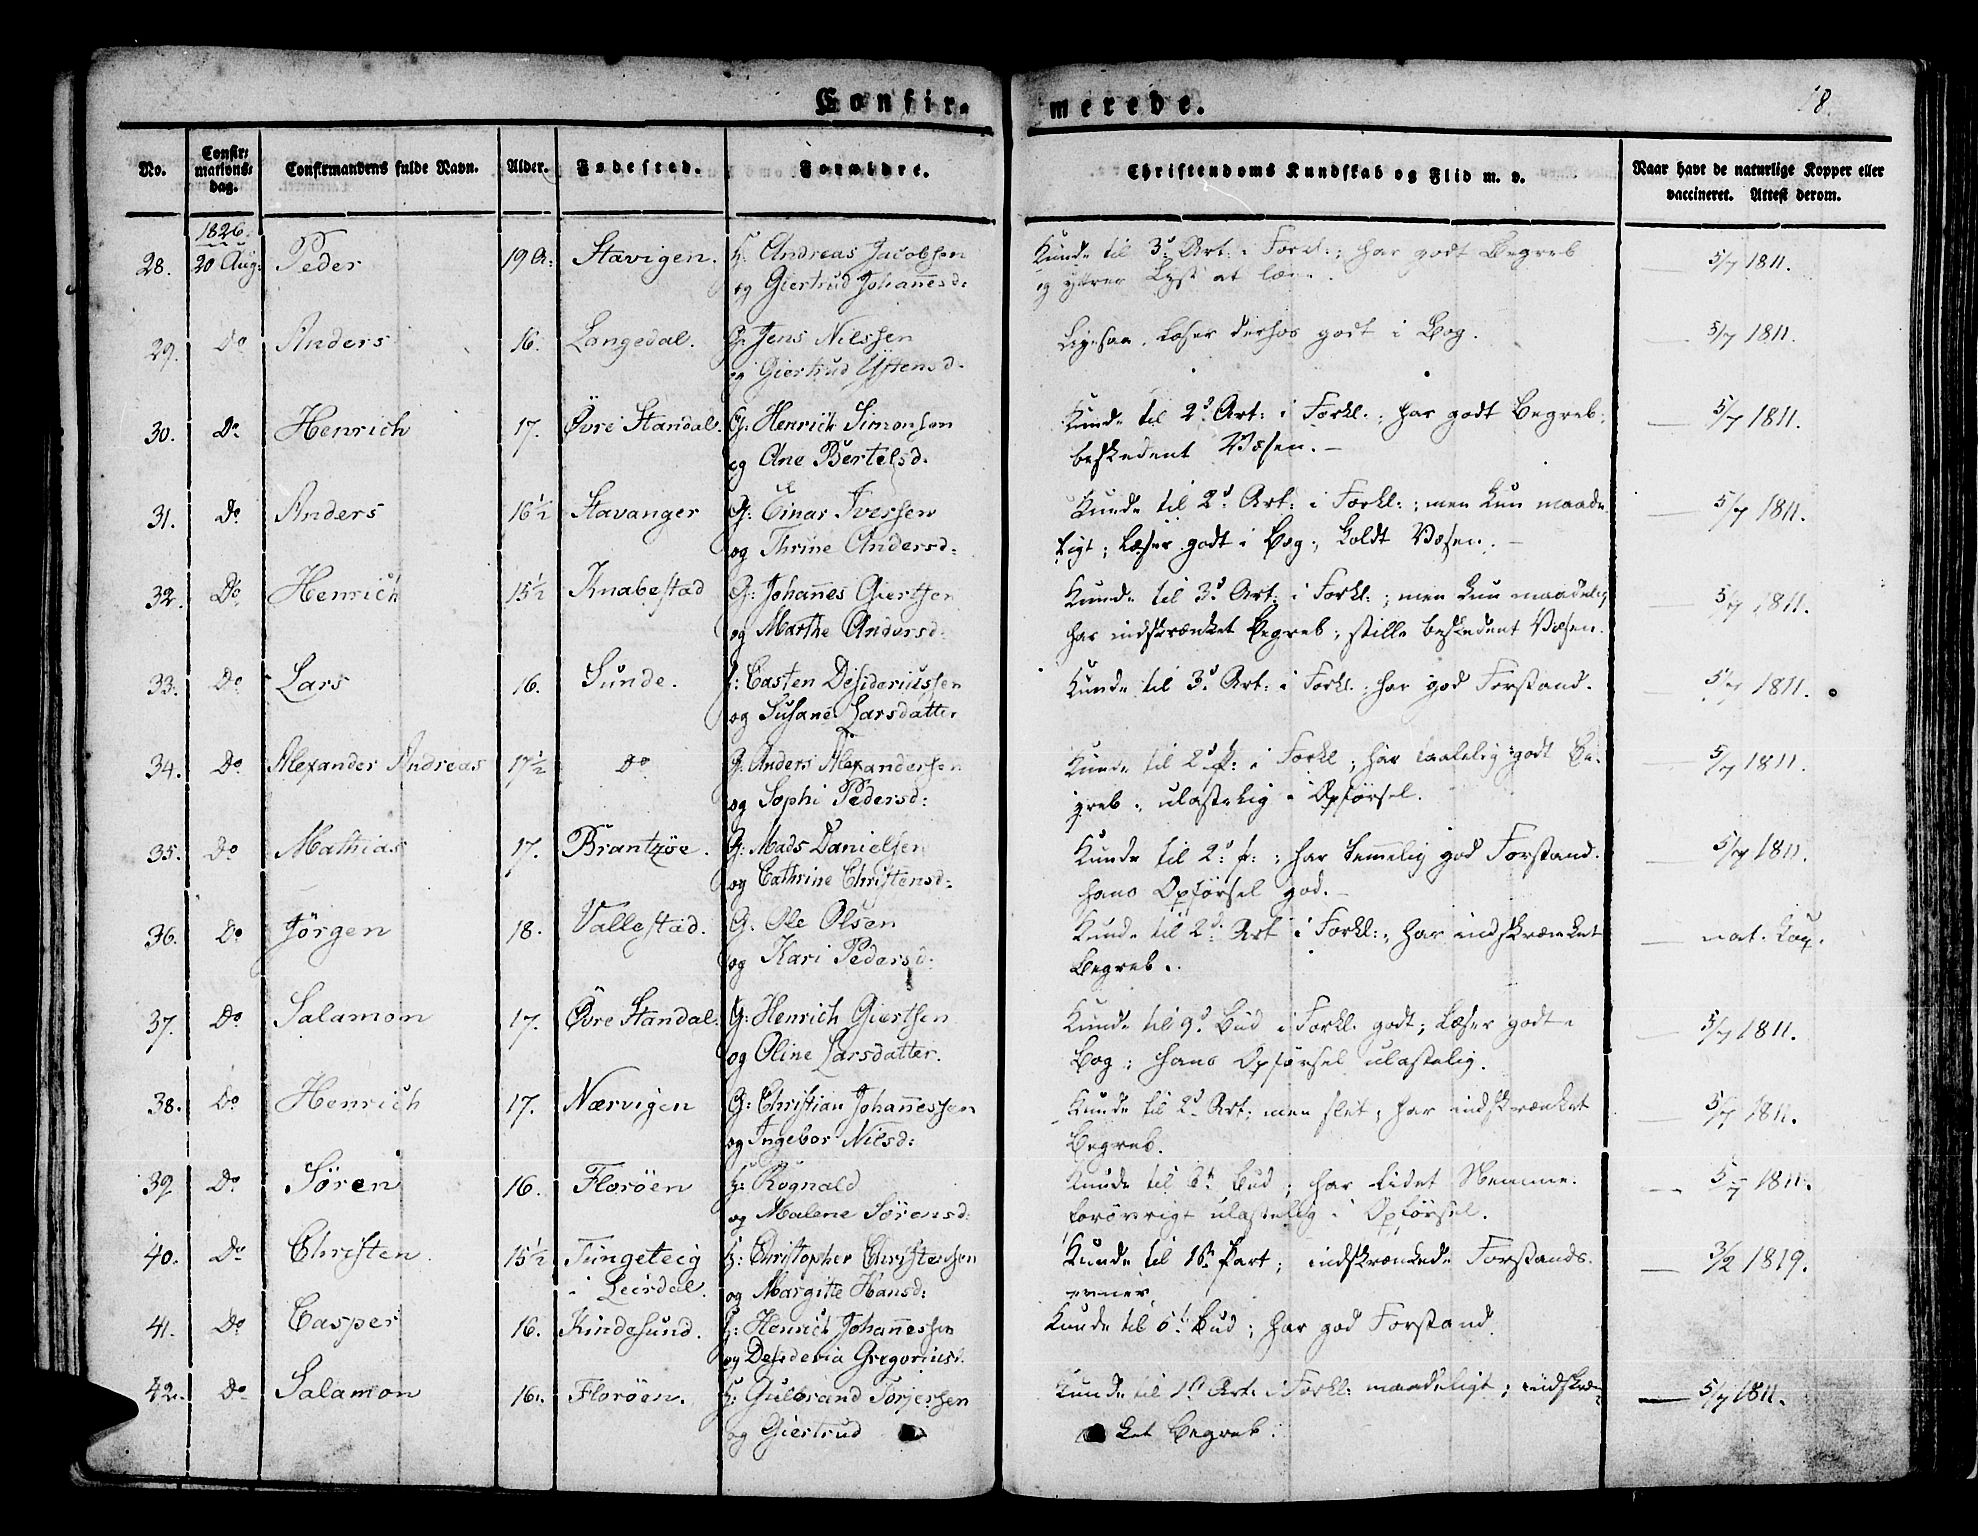 Confir-
merede.
18.
No.
Confir-
mations-
dag.
Confirmandens fulde Navn.
Alder.
Fødested.
Forældre.
Christendoms Kundskab og Flid m. v.
Naar havt de naturlige Kopper eller
vaccineret. Attest derom.
1826.
28. 20 Aug: Peder 19 A: Stavigen. G: Andreas Jacobsen Kunde til 3d. Art: i Forkl.; har godt Begreb 5/7 1811.
og Giertrud Johannesd: og yttrer Lyst at lære.
29. Do Anders 16. Langedal. G: Jens Nilssen Ligesaa, læser derhos godt i Bog. 5/7 1811.
og Giertrud d.
30. Do Henrich 17. Øvre Standal. G: Henrich Simonsen Kunde til 2d. Art: i Forkl.; har godt Begreb. 5/7 1811.
og Ane Bertelsd. beskedent Væsen. –
31. Do Anders 16½ Stavanger G: Einar Iversen Kunde til 2d. Art: i Forkl:; men kun maade- 5/7 1811.
og Thrine Andersd: ligt; læser godt i Bog; koldt Væsen. –
32. Do Henrich 15½ Knabestad G: Johannes Giertsen Kunde til 3d. Art: i Forkl:; men kun maadelig 5/7 1811.
og Marthe Andersd: har indskrænket Begreb; stille beskedent Væsen.
33. Do Lars 16. Sunde. G: Casten Desideriussen Kunde til 3d. Art: i Forkl.; har god Forstand. 5/7 1811.
og Susane Larsdatter
34. Do Alexander Andreas 17½ Do G: Anders Alexandersen Kunde til 2d i Forkl; har taalelig godt Be- 5/7 1811.
og Sophi Pedersd: greb; ulastelig i Opførsel.
35. Do Mathias 17. Brantzøe. G: Mads Danielsen Kunde til 2d; har temmelig god Forstand. 5/7 1811.
og Cathrine Christensd: hans Opførsel god. –
36. Do Jörgen 18. Vallestad. G. Ole Olsen Kunde til 2d. Art i Forkl:; har indskrænket nat. Kop.
og Kari Pedersd. Begreb.
37. Do Salamon 17. Øvre Standal. G: Henrich Giertsen Kunde til 9d. Bud i Forkl. godt; læser godt i 5/7 1811.
og Oline Larsdatter. Bog; hans Opførsel ulastelig.
38. Do Henrich 17. Nærvigen G: Christian Johannessen Kunde til 2d. Art: men slet; har indskrænket 5/7 1811.
og Ingebor Nilsd: Begreb.
39 Do Sören 16. Floröen G: Rognald Kunde til 6te Bud; har lidet Nemme. 5/7 1811.
og Malene Sörensd: forövrigt ulastelig i Opførsel.
40. Do Christen. 15½ Tungeteig G: Christopher Christensen Kunde til 1ste Part; indskrænkede Forstands- 3/2 1819.
i Leirdal. og Margitte Hansd: evner.
41. Do Casper 16. Kindesund. G: Henrich Johannessen Kunde til 6t. Bud; har god Forstand.
og Desideria Gregoriusd.
42. Do Salamon 16. Floröen. G: Gulbrand Torjersen Kunde til 1st Art: i Forkl: maadeligt; indskræn- 5/7 1811.
og Giertrud ket Begreb.